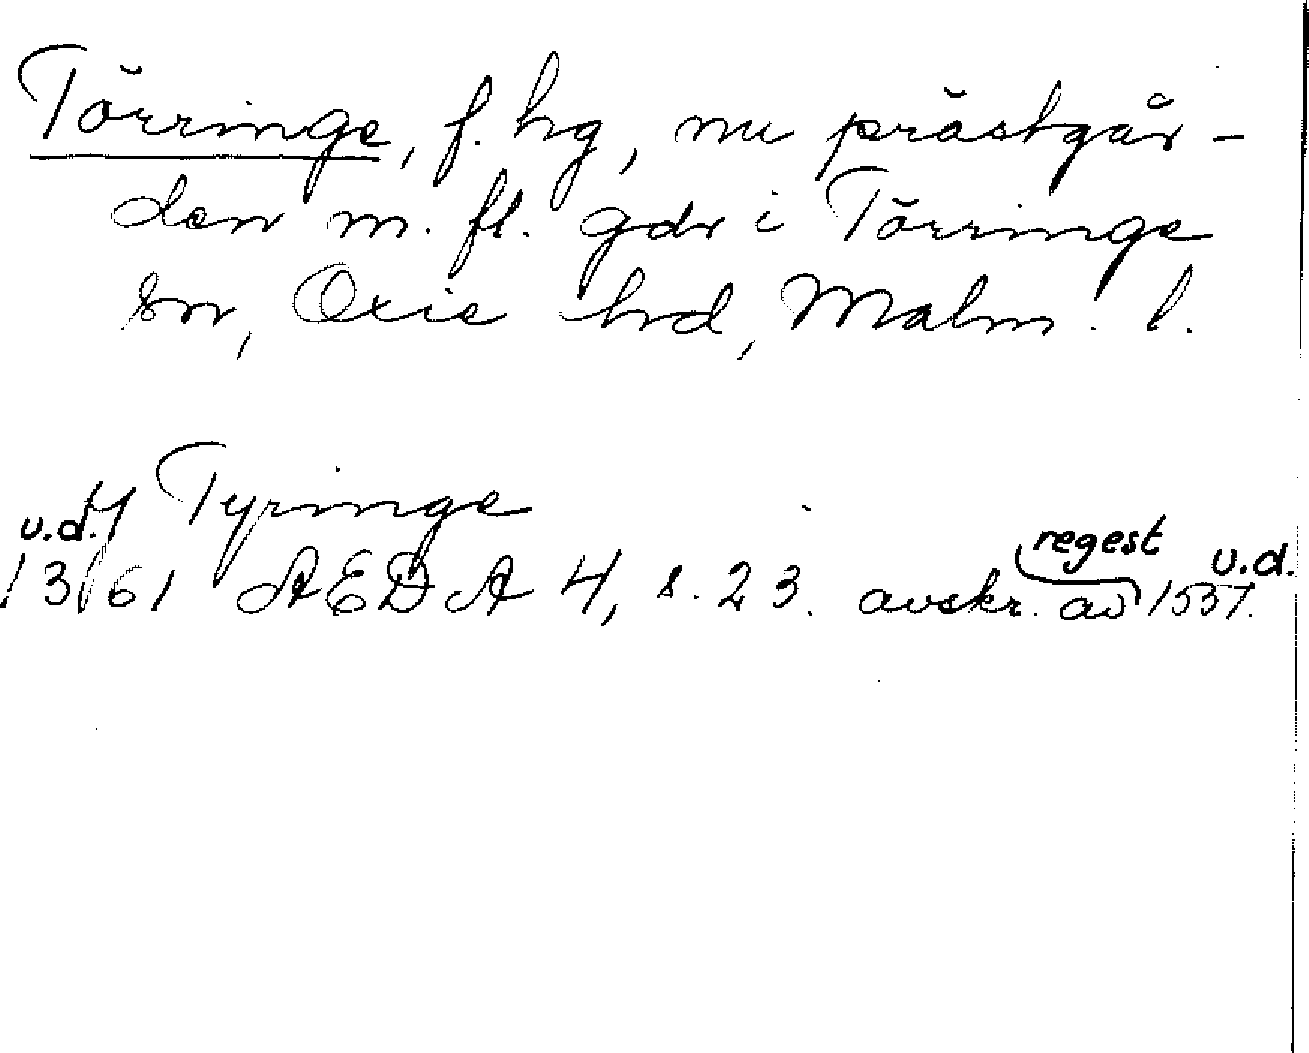 Törringe, f. hg, nu prästgår-
den m. fl. gdr i Törringe
sn, Oxie hrd, Malm. l.
Tyringe
u.d.
1361 AEDA 4, s. 23. avskr. av regest u.d. 1537.